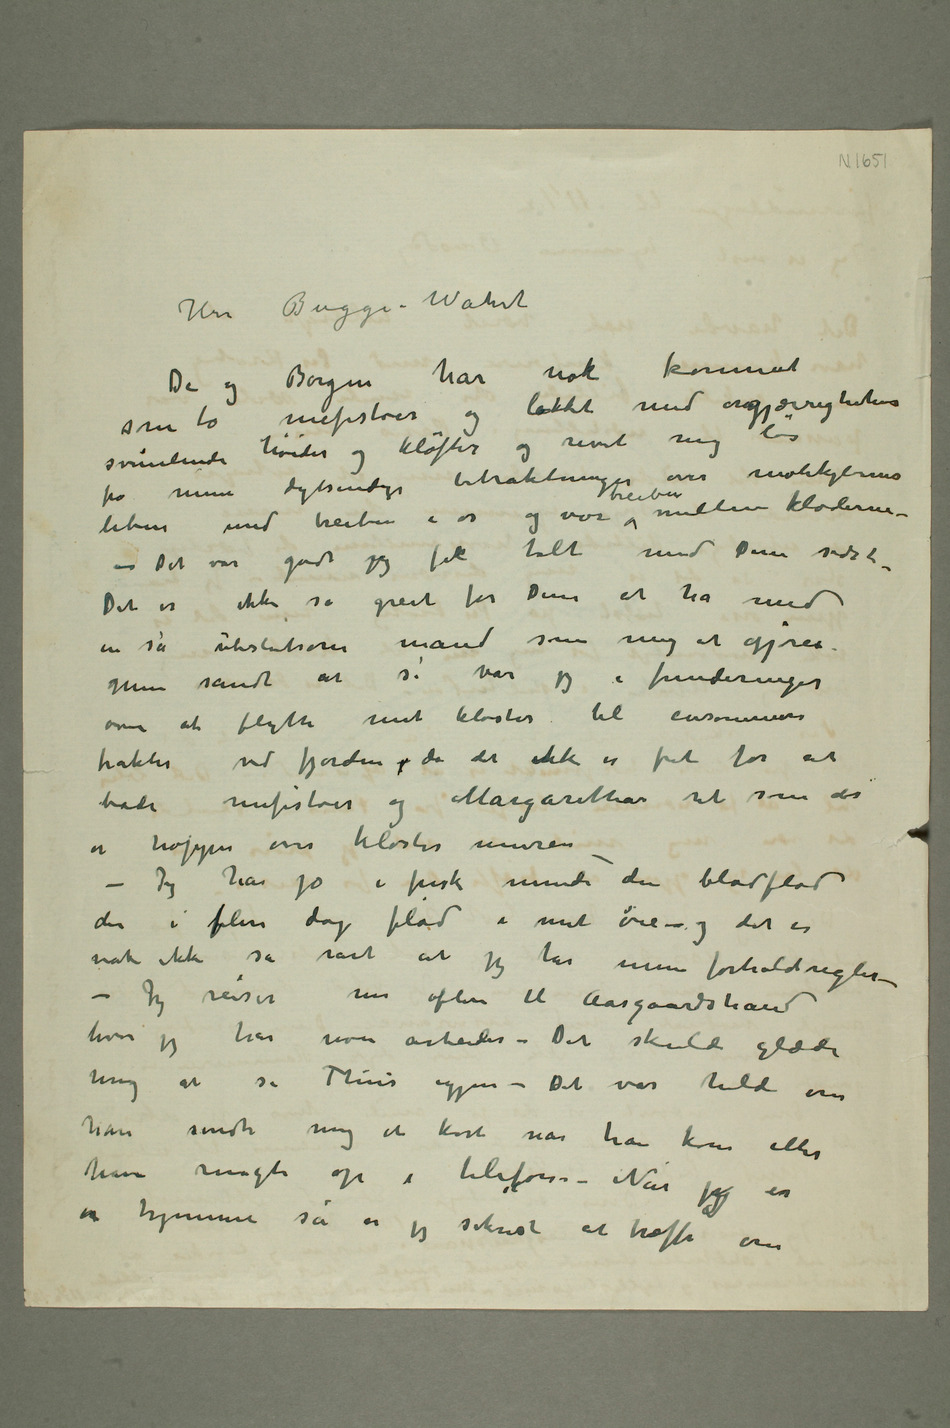 N 1651
Herr Bugge-Wahrt
De og Borgen har nok kommet
som to mefistoer og lokket med ærgjærrighetens
svimlende høider og kløfter og revet mig løs
fra mine dybsindige betraktninger over molekylernes
leben med treiben i os og vor treiben mellem kloderne –
– Det var godt jeg fik talt med Dem sidst –
Det er ikke så greit for Dem at ha med
en så ubestemt mand som mig at gjøre.
Men sandt at si var jeg i funderinger
om at flytte mit kloster til ensommere
trakter ved fjorden da det ikke er frit for at
både mefistoer og Margarethar ret som det
er hopper over kloster muren –
– Jeg har jo i frisk minde den blodflod
der i flere dage flød i mit øie – og det er
nok ikke så rart at jeg tar mine forholdsregler –
– Jeg reiser nu oftere til Aasgaardstrand
hvor jeg har noen arbeider – Det skulde glæde
mig at se Thiis igjen – Det var bedst om
han sendte mig et kort når han kom eller
han ringte op i telefon – Når jeg er
hjemme så er jeg sikrest at træffe om